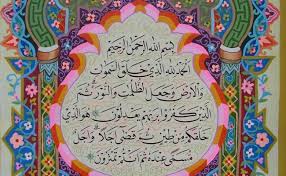 بسم الله الرحمن الرحيم
الحمد لله الذي خلق السموت
والارض وجعل الظلمت والنور ثم
الذين كفروا بربهم يعدلون هو الذي
خلقكم من طين ثم قضى اجلا واجل
مسمى عنده ثم انتم تمترون